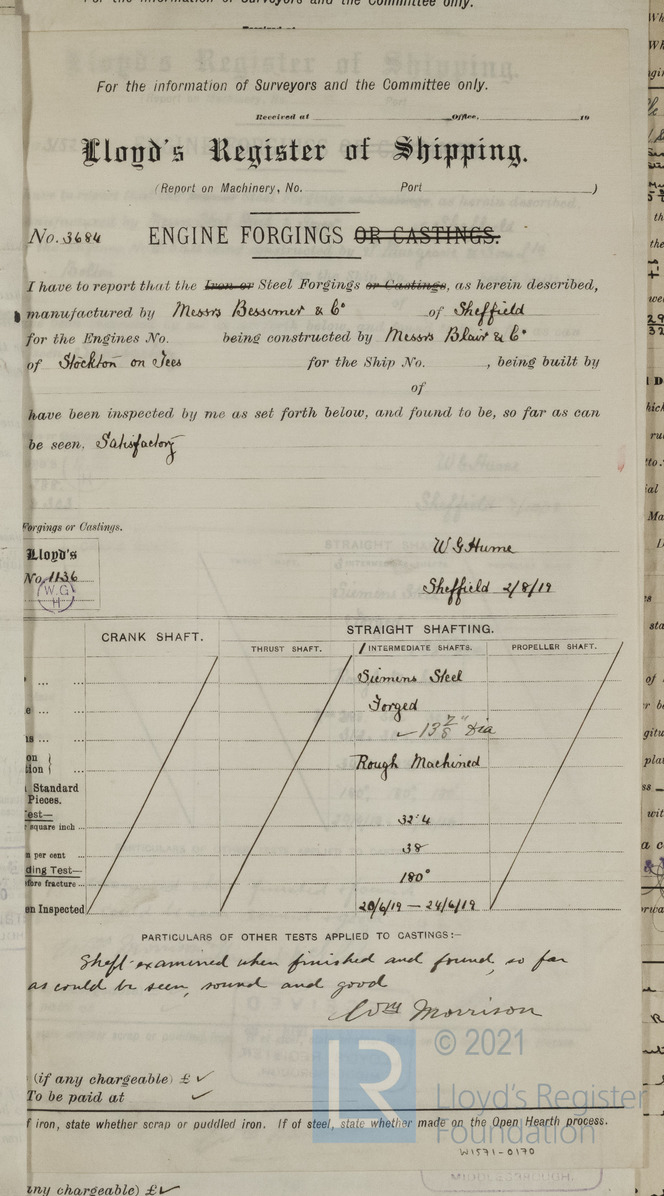 For the information of Surveyors and the Committee only.
Received at Office. 19
Lloyd's Register of Shipping.
(Report on Machinery, No. Port )
No. 3684 ENGINE FORGINGS OR CASTINGS.
I have to report that the Iron or Steel Forgings or Castings, as herein described,
manufactured by Messrs Bessemer & Co of Sheffield
for the Engines No. being constructed by Messrs Blair & Co
of Stockton on Tees for the Ship No. , being built by
of
have been inspected by me as set forth below, and found to be, so far as can
be seen. Satisfactory
Forgings or Castings.
Lloyd's
No. 1136
W.G.
H
W G Hume
Sheffield 2/8/19
CRANK SHAFT. STRAIGHT SHAFTING.
THRUST SHAFT. 1 INTERMEDIATE SHAFTS. PROPELLER SHAFT.
Siemens Steel
Forged
✓ 13 7/8" Dia
Rough Machined
Standard
Pieces.
square inch 32.4
per cent 38
before fracture 180°
Inspected 20/6/19 — 24/6/19
PARTICULARS OF OTHER TESTS APPLIED TO CASTINGS:—
Shaft examined when finished and found, so far
as could be seen, sound and good
Wm Morrison
(if any chargeable) £ ✓
To be paid at ✓
f iron, state whether scrap or puddled iron. If of steel, state whether made on the Open Hearth process.
© 2021
Lloyd's Register
Foundation
W1571-0170
MIDDLESBOROUGH.
any chargeable) £ ✓